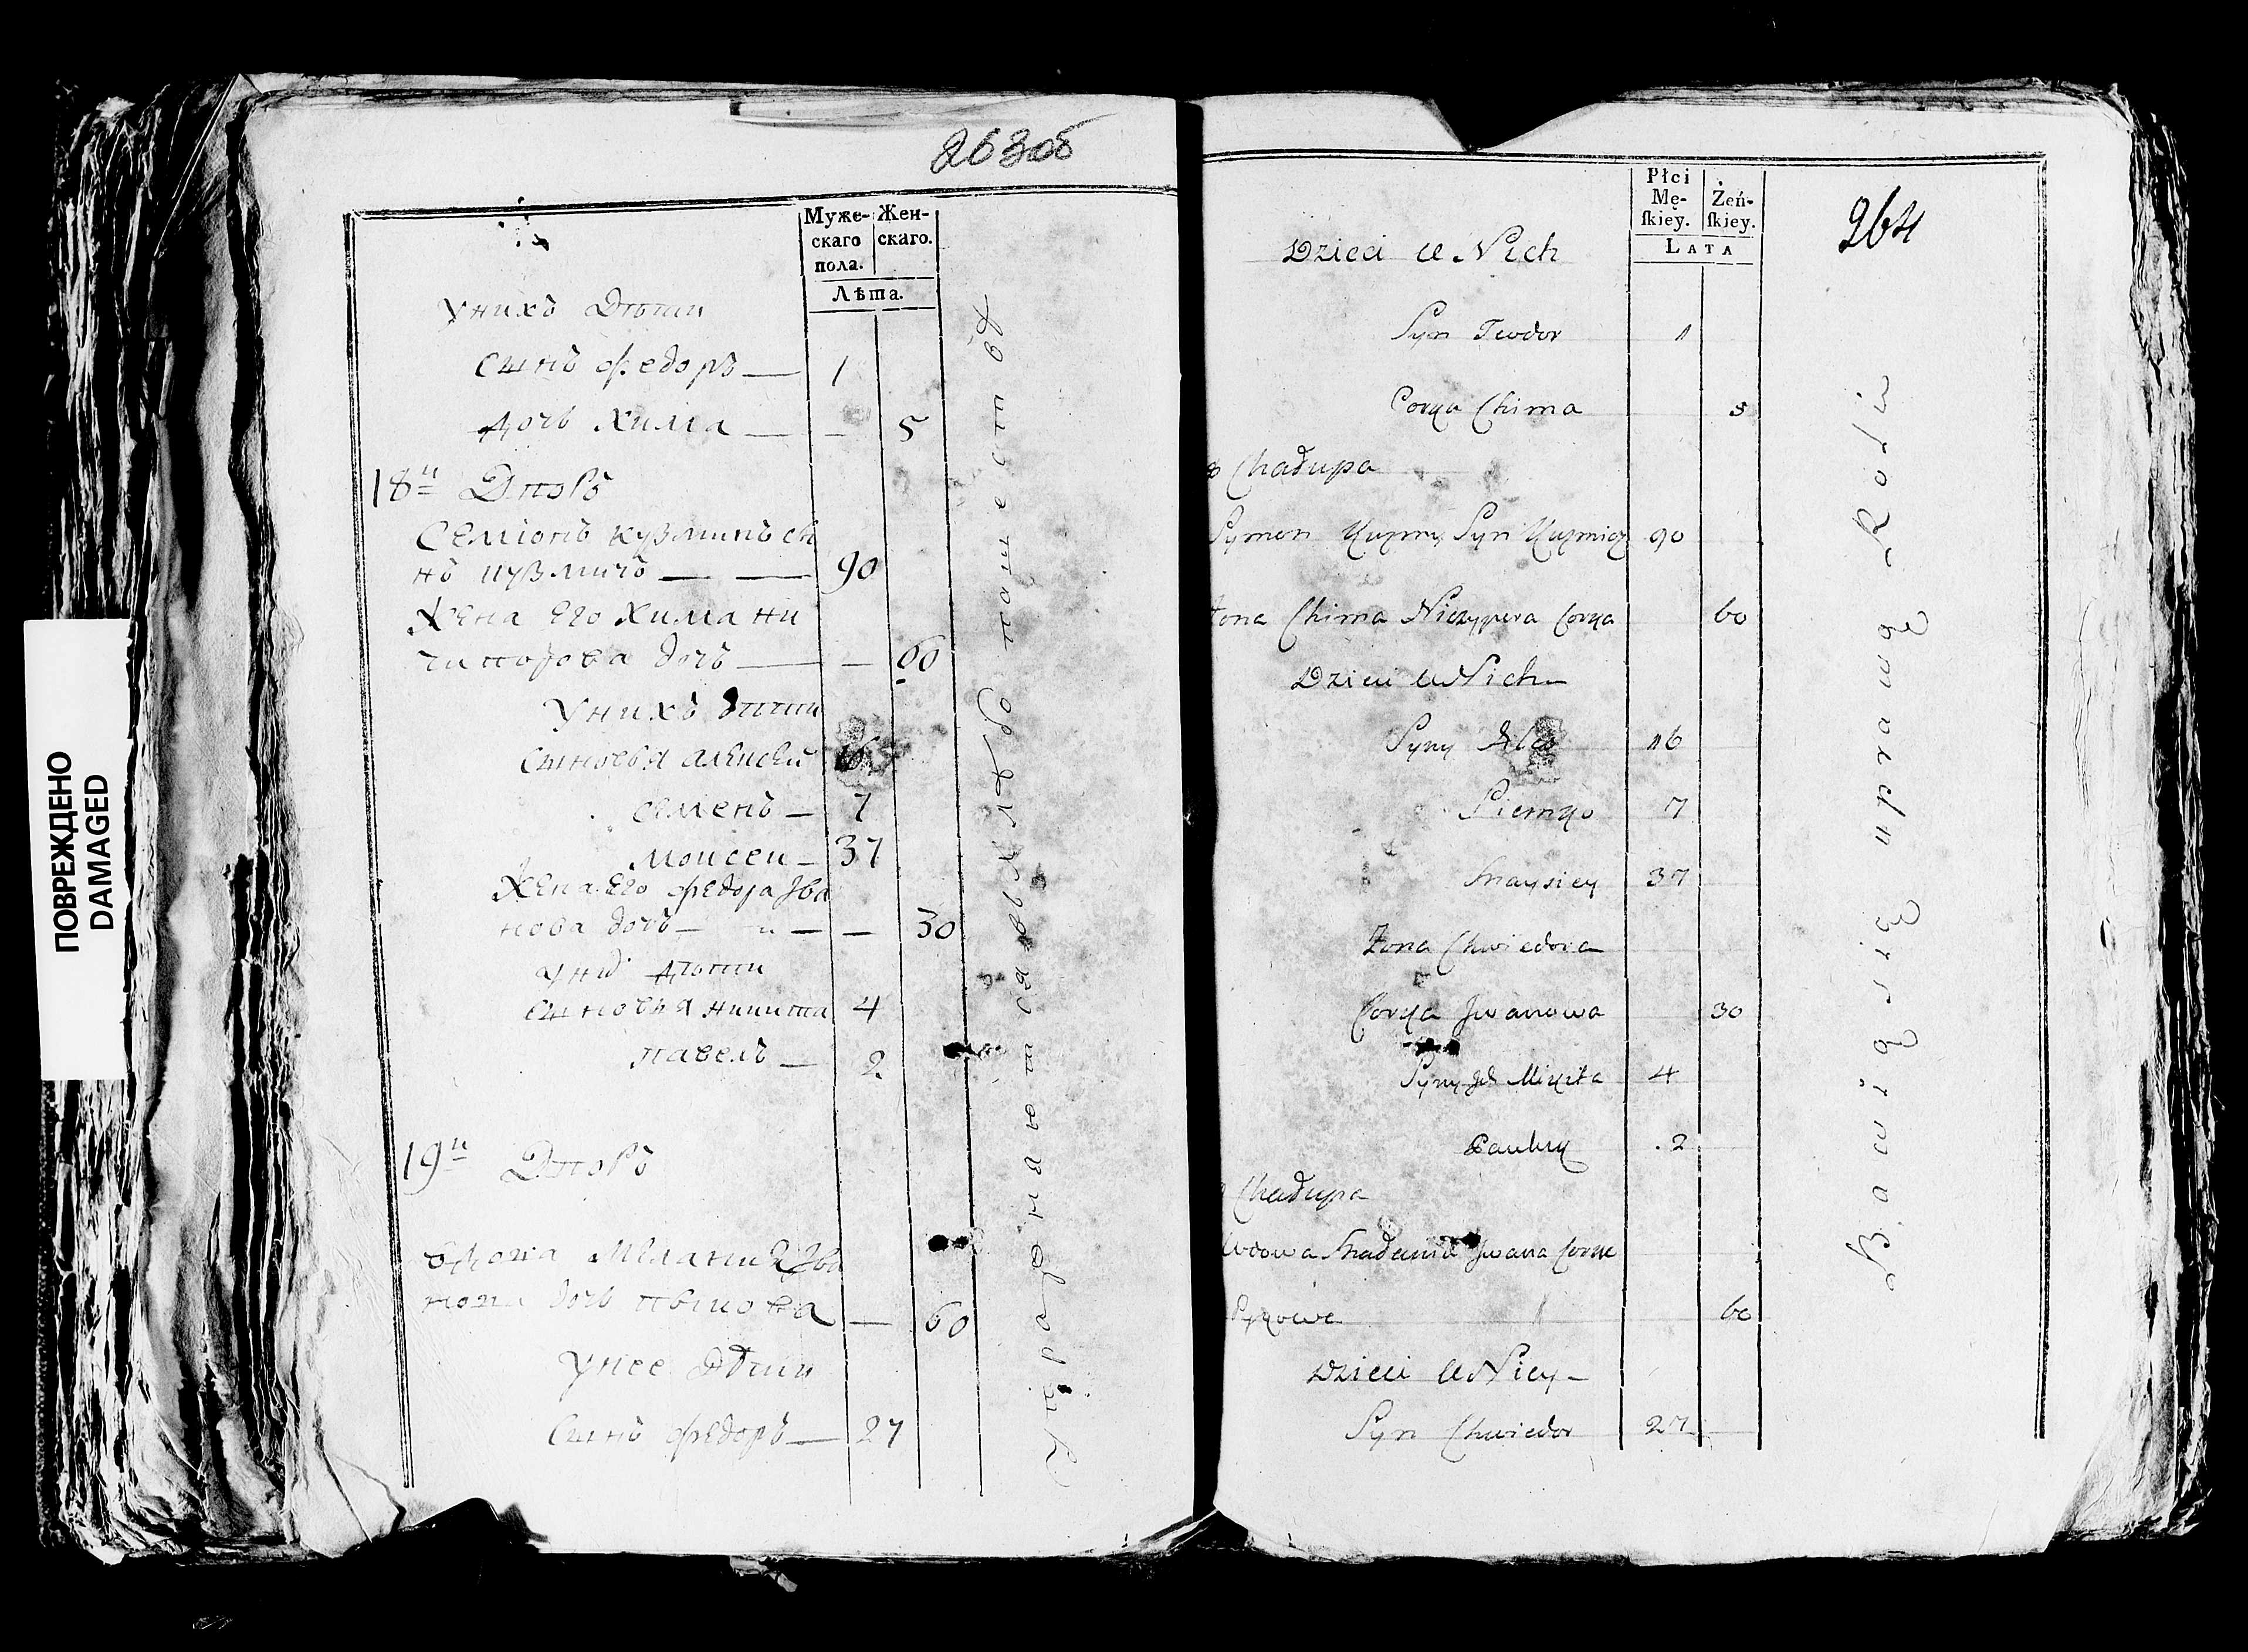 ПОВРЕЖДЕНО
DAMAGED
263об
Муже-
скаго
пола.
Жен-
скаго.
Лѣта.
Унихъ Дѣти
Сынъ федоръ — 1
Дочь Хима — — 5
18й Дворъ
Семіонъ кузминъ сы
нъ кузмичъ — — 90
Жена Его Хима ни
чипорова дочь — — 60
Унихъ дѣти
Сыновья алексей 16
семенъ — 7
Моисеи — 37
Жена Его федора Ива
нова дочь — — — 30
уних дѣти
Сыновья никита 4
павелъ — 2
19й Дворъ
вдова Мелания Ива
нова дочь — 60
Унее дѣти
Сынъ федоръ — 27
Упражняются въ хлѣбопашестве
264
Płci
Mę-
ſkiey.
Żeń-
ſkiey.
LATA
Dzieci u Nich
Syn Teodor 1
Corka Chima 5
8 Chałupa
Symon Kuzmy Syn Kuzmicz 90
Żona Chima Niczypera Corka 60
Dzieci u Nich
Syny 16
Siemko 7
Maysiey 37
Żona Chwiedora
Corka Jwanowa 30
Syny ich Mikita 4
Pauluk 2
Chałupa
Wdowa Jwana Corka
60
Dzieci u Niey
Syn Chwiedor 27
Bawią się uprawą Roli